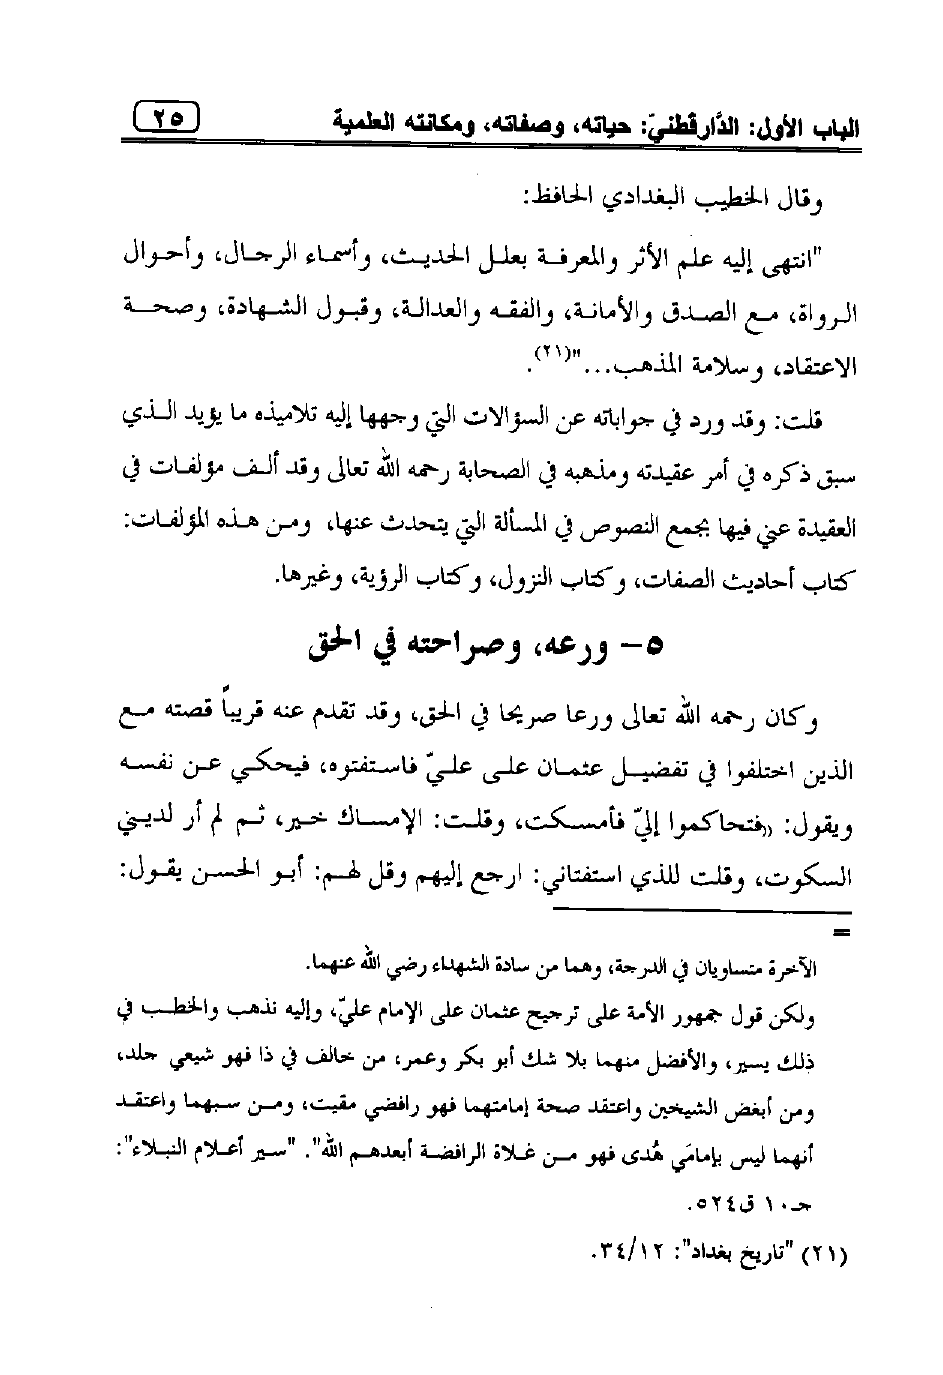 الباب الأول: الدَّارقطنيّ: حياته، وصفاته، ومكانته العلمية
٢٥
وقال الخطيب البغدادي الحافظ:
"انتهى إليه علم الأثر والمعرفة بعلل الحديث، وأسماء الرجال، وأحوال
الرواة، مع الصدق والأمانة، والفقه والعدالة، وقبول الشهادة، وصحة
الاعتقاد، وسلامة المذهب..."(٢١).
قلت: وقد ورد في جواباته عن السؤالات التي وجهها إليه تلاميذه ما يؤيد الذي
سبق ذكره في أمر عقيدته ومذهبه في الصحابة رحمه الله تعالى وقد ألف مؤلفات في
العقيدة عني فيها بجمع النصوص في المسألة التي يتحدث عنها، ومن هذه المؤلفات:
كتاب أحاديث الصفات، وكتاب النزول، وكتاب الرؤية، وغيرها.
٥- ورعه، وصراحته في الحق
وكان رحمه الله تعالى ورعا صريحا في الحق، وقد تقدم عنه قريباً قصته مع
الذين اختلفوا في تفضيل عثمان على عليّ فاستفتوه، فيحكي عن نفسه
ويقول: «فتحاكموا إليّ فأمسكت، وقلت: الإمساك خير، ثم لم أر لديني
السكوت، وقلت للذي استفتاني: ارجع إليهم وقل لهم: أبو الحسن يقول:
=
الآخرة متساويان في الدرجة، وهما من سادة الشهداء رضي الله عنهما.
ولكن قول جمهور الأمة على ترجيح عثمان على الإمام عليّ، وإليه نذهب والخطب في
ذلك يسير، والأفضل منهما بلا شك أبو بكر وعمر، من خالف في ذا فهو شيعي جلد،
ومن أبغض الشيخين واعتقد صحة إمامتهما فهو رافضي مقيت، ومن سبهما واعتقد
أنهما ليس بإمامَي هُدى فهو من غلاة الرافضة أبعدهم الله". "سير أعلام النبلاء":
جـ١٠ ق٥٢٤.
(٢١) "تاريخ بغداد": ٣٤/١٢.